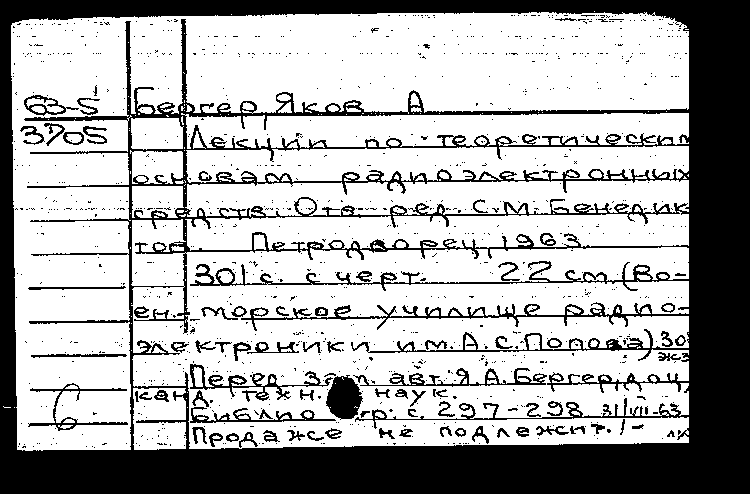 63-5 Бергер, Яков А
37705 Лекции по теоретическим
основам радиоэлектронных
средств. Отв. ред. С.М. Бенедик
тов. Петродворец, 1963.
301 с. с черт. 22 см (Во-
ен.-морское училище радио-
электроники им. А.С. Попова) 30
экз
Перед загл. авт. Я.А. Бергер, доц,
канд. техн. наук.
Библиогр. с. 297-298 31/VII-63
6
Продаже не подлежит. /-